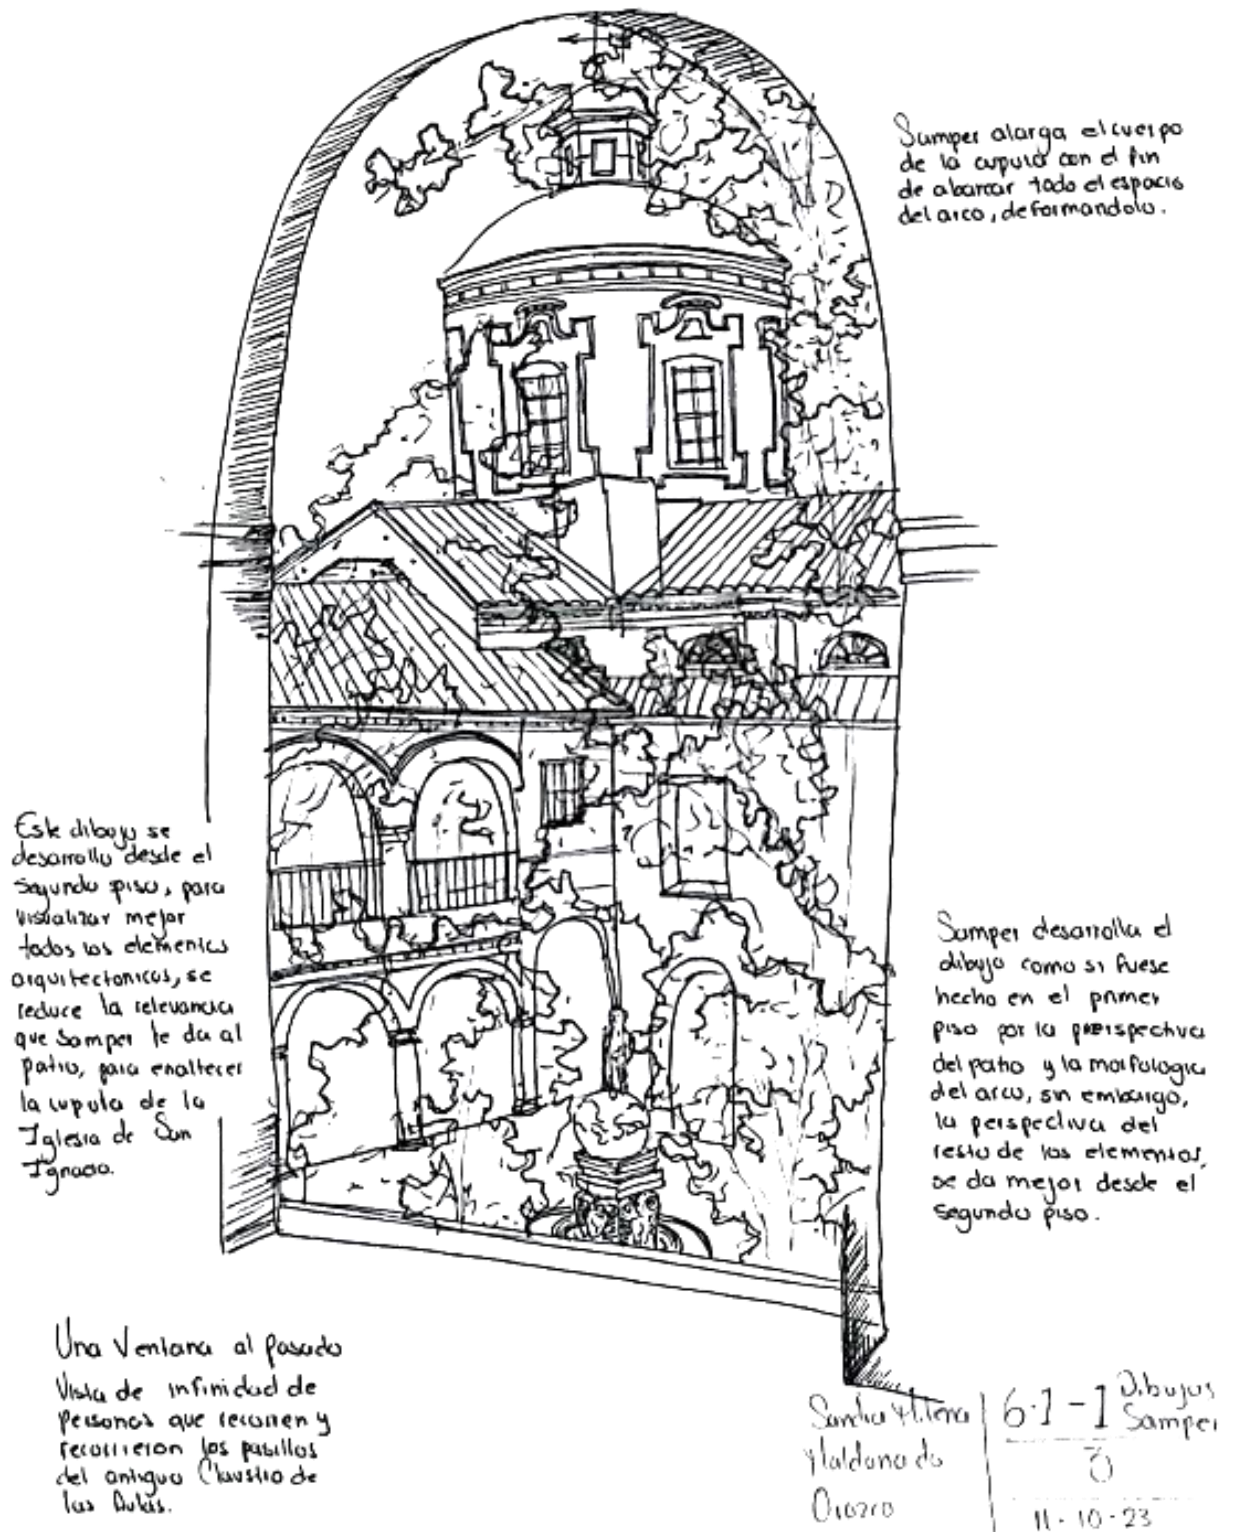 Samper alarga el cuerpo
de la cupula con el fin
de abarcar todo el espacio
del arco, deformandolo.
Este dibujo se
desarrolla desde el
segundo piso, para
visualizar mejor
todos los elementos
arquitectonicos, se
reduce la relevancia
que Samper le da al
patio, para enaltecer
la cupula de la
Iglesia de San
Ignacio.
Samper desarrolla el
dibujo como si fuese
hecho en el primer
piso por la perspectiva
del patio y la morfologia
del arco, sin embargo,
la perspectiva del
resto de los elementos,
se da mejor desde el
segundo piso.
Una Ventana al pasado
Vista de infinidad de
personas que recorren y
recorrieron los pasillos
del antiguo Claustro de
las Aulas.
Sandra Milena
Maldonado
Orozco
6.1-1 Dibujos
Samper
3
11-10-23